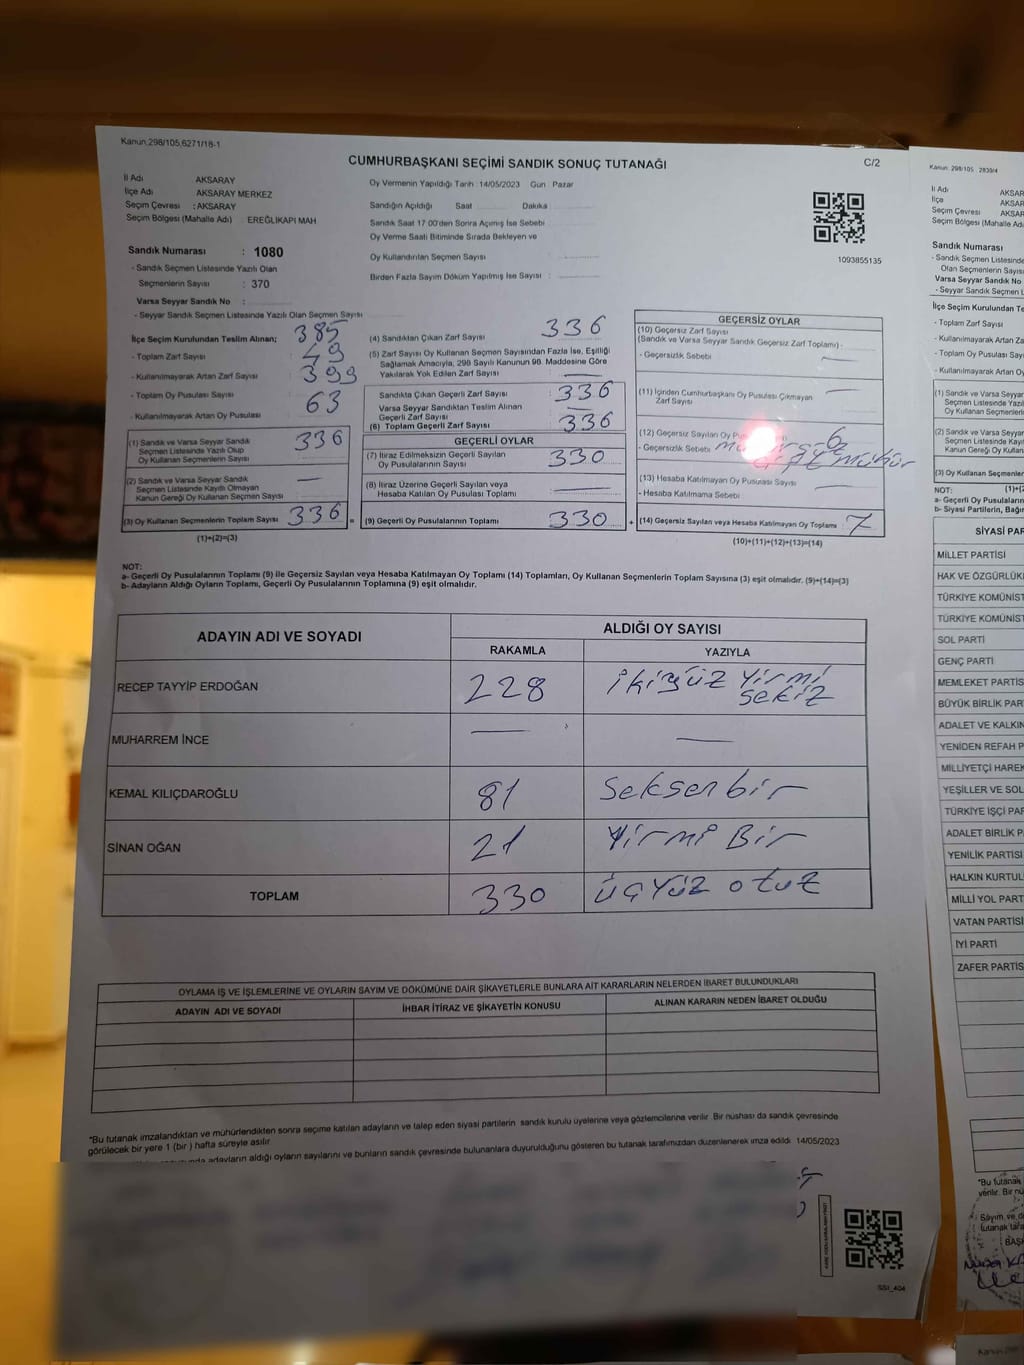 Kanun;298/105,6271/18-1
CUMHURBAŞKANI SEÇİMİ SANDIK SONUÇ TUTANAĞI
C/2
İl Adı AKSARAY
İlçe Adı AKSARAY MERKEZ
Seçim Çevresi : AKSARAY
Seçim Bölgesi (Mahalle Adı) : EREĞLİKAPI MAH
Sandık Numarası : 1080
- Sandık Seçmen Listesinde Yazılı Olan
Seçmenlerin Sayısı : 370
Varsa Seyyar Sandık No :
- Seyyar Sandık Seçmen Listesinde Yazılı Olan Seçmen Sayısı
İlçe Seçim Kurulundan Teslim Alınan; 385
- Toplam Zarf Sayısı 49
- Kullanılmayarak Artan Zarf Sayısı 399
- Toplam Oy Pusulası 63
- Kullanılmayarak Artan Oy Pusulası
(1) Sandık ve Varsa Seyyar Sandık
Seçmen Listesinde Yazılı Olup
Oy Kullanan Seçmenlerin Sayısı 336
(2) Sandık ve Varsa Seyyar Sandık
Seçmen Listesinde Kayıtlı Olmayan
Kanun Gereği Oy Kullanan Seçmen Sayısı —
(3) Oy Kullanan Seçmenlerin Toplam Sayısı 336 =
(1)+(2)=(3)
Oy Vermenin Yapıldığı Tarih :14/05/2023 Gün : Pazar
Sandığın Açıldığı Saat Dakika
Sandık Saat 17:00'den Sonra Açılmış İse Sebebi
Oy Verme Saati Bitiminde Sırada Bekleyen ve
Oy Kullandırılan Seçmen Sayısı :
Birden Fazla Sayım Döküm Yapılmış İse Sayısı :
(4) Sandıktan Çıkan Zarf Sayısı 336
(5) Zarf Sayısı Oy Kullanan Seçmen Sayısından Fazla İse, Eşitliği
Sağlamak Amacıyla, 298 Sayılı Kanunun 98. Maddesine Göre
Yakılarak Yok Edilen Zarf Sayısı —
Sandıkta Çıkan Geçerli Zarf Sayısı 336
Varsa Seyyar Sandıktan Teslim Alınan
Geçerli Zarf Sayısı —
(6) Toplam Geçerli Zarf Sayısı 336
GEÇERLİ OYLAR
(7) İtiraz Edilmeksizin Geçerli Sayılan
Oy Pusulalarının Sayısı 330
(8) İtiraz Üzerine Geçerli Sayılan veya
Hesaba Katılan Oy Pusulası Toplamı —
(9) Geçerli Oy Pusulalarının Toplamı 330 +
1093855135
GEÇERSİZ OYLAR
(10) Geçersiz Zarf Sayısı
(Sandık ve Varsa Seyyar Sandık Geçersiz Zarf Toplamı) :
- Geçersizlik Sebebi —
(11) İçinden Cumhurbaşkanı Oy Pusulası Çıkmayan
Zarf Sayısı —
(12) Geçersiz Sayılan Oy 6
- Geçersizlik Sebebi mühür
(13) Hesaba Katılmayan Oy Pusulası Sayısı —
- Hesaba Katılmama Sebebi
(14) Geçersiz Sayılan veya Hesaba Katılmayan Oy Toplamı : 7
(10)+(11)+(12)+(13)=(14)
NOT:
a- Geçerli Oy Pusulalarının Toplamı (9) ile Geçersiz Sayılan veya Hesaba Katılmayan Oy Toplamı (14) Toplamları, Oy Kullanan Seçmenlerin Toplam Sayısına (3) eşit olmalıdır. (9)+(14)=(3)
b- Adayların Aldığı Oyların Toplamı, Geçerli Oy Pusulalarının Toplamına (9) eşit olmalıdır.
ADAYIN ADI VE SOYADI
ALDIĞI OY SAYISI
RAKAMLA YAZIYLA
RECEP TAYYİP ERDOĞAN 228 ikiyüz yirmi
sekiz
MUHARREM İNCE — —
KEMAL KILIÇDAROĞLU 81 Seksenbir
SİNAN OĞAN 21 Yirmi Bir
TOPLAM 330 üçyüz otuz
OYLAMA İŞ VE İŞLEMLERİNE VE OYLARIN SAYIM VE DÖKÜMÜNE DAİR ŞİKAYETLERLE BUNLARA AİT KARARLARIN NELERDEN İBARET BULUNDUKLARI
ADAYIN ADI VE SOYADI İHBAR İTİRAZ VE ŞİKAYETİN KONUSU ALINAN KARARIN NEDEN İBARET OLDUĞU
*Bu tutanak imzalandıktan ve mühürlendikten sonra seçime katılan adayların ve talep eden siyasi partilerin sandık kurulu üyelerine veya gözlemcilerine verilir. Bir nüshası da sandık çevresinde
görülecek bir yere 1 (bir) hafta süreyle asılır.
adayların aldığı oyların sayılarını ve bunların sandık çevresinde bulunanlara duyurulduğunu gösteren bu tutanak tarafımızdan düzenlenerek imza edildi. 14/05/2023
SS1_404
Kanun: 298/105 2839/4
İl Adı AKSAR
İlçe AKSAR
Seçim Çevresi AKSAR
Seçim Bölgesi (Mahalle Adı
Sandık Numarası
- Sandık Seçmen Listesinde
Olan Seçmenlerin Sayısı
Varsa Seyyar Sandık No
- Seyyar Sandık Seçmen L
İlçe Seçim Kurulundan Tesl
- Toplam Zarf Sayısı
- Kullanılmayarak Artan Zarf
- Toplam Oy Pusulası Sayı
- Kullanılmayarak Artan Oy
(1) Sandık ve Varsa Seyyar
Seçmen Listesinde Yazılı
Oy Kullanan Seçmenlerin
(2) Sandık ve Varsa Seyyar
Seçmen Listesinde Kayıt
Kanun Gereği Oy Kullan
(3) Oy Kullanan Seçmenler
NOT: (1)+(2
a- Geçerli Oy Pusulalarının
b- Siyasi Partilerin, Bağım
SİYASİ PAR
MİLLET PARTİSİ
HAK VE ÖZGÜRLÜK
TÜRKİYE KOMÜNİST
TÜRKİYE KOMÜNİST
SOL PARTİ
GENÇ PARTİ
MEMLEKET PARTİS
BÜYÜK BİRLİK PAR
ADALET VE KALKIN
YENİDEN REFAH P
MİLLİYETÇİ HAREK
YEŞİLLER VE SOL
TÜRKİYE İŞÇİ PAR
ADALET BİRLİK P
YENİLİK PARTİSİ
HALKIN KURTUL
MİLLİ YOL PART
VATAN PARTİSİ
İYİ PARTİ
ZAFER PARTİS
*Bu tutanak
verilir. Bir nü
Sayım, ve d
tutanak tara
BAŞK